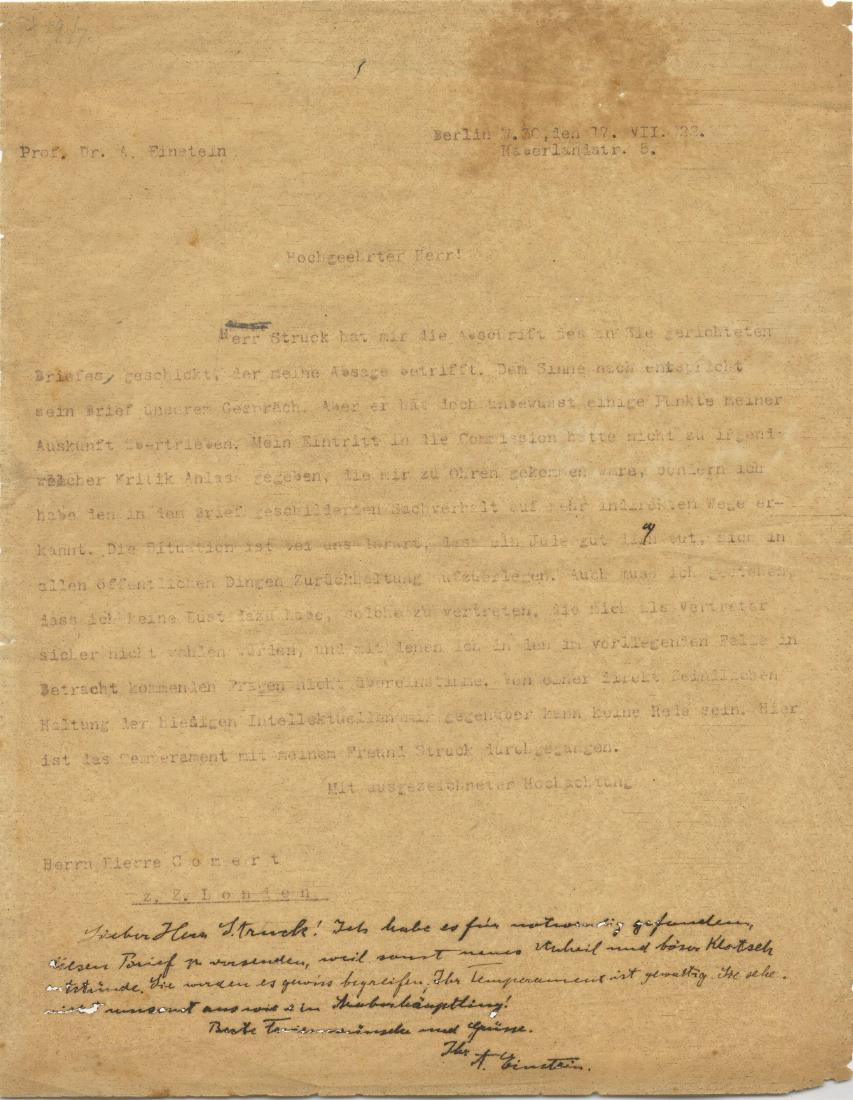 Berlin W.30, den 17. VII. 22.
Prof. Dr. A. Einstein
Haberlandstr. 5.
Hochgeehrter Herr!
Herr Struck hat mir die Abschrift des an Sie gerichteten
Briefes, geschickt, der meine Absage betrifft. Dem Sinne nach entspricht
sein Brief unserem Gespräch. Aber er hat doch unbewusst einige Punkte meiner
Auskunft übertrieben. Mein Eintritt in die Commission hatte nicht zu irgend-
welcher Kritik Anlass gegeben, die mir zu Ohren gekommen wäre, sondern ich
habe den in dem Brief geschilderten Sachverhalt auf mehr indirekten Wege er-
kannt. Die Situation ist bei uns derart, dass ein Jude gut daran tut, sich in
allen öffentlichen Dingen Zurückhaltung aufzuerlegen. Auch muss ich gestehen,
dass ich keine Lust dazu habe, solche zu vertreten, die mich als Vertreter
sicher nicht wählen würden, und mit denen ich in den im vorliegenden Falle in
Betracht kommenden Fragen nicht übereinstimme. Von einer direkt feindlichen
Haltung der hiesigen Intellektuellen mir gegenüber kann keine Rede sein. Hier
ist das Temperament mit meinem Freund Struck durchgegangen.
Mit ausgezeichneter Hochachtung
Herrn Pierre Comert
z. Z. London
Lieber Herr Struck! Ich habe es für notwendig gefunden,
diesen Brief zu versenden, weil sonst neues Unheil und böser Klatsch
entstünde. Sie werden es gewiss begreifen, Ihr Temperament ist gewaltig. Sie sehe-
nicht umsonst aus wie ein Araberhäuptling!
Beste Ferienwünsche und Grüsse.
Ihr
A. Einstein.